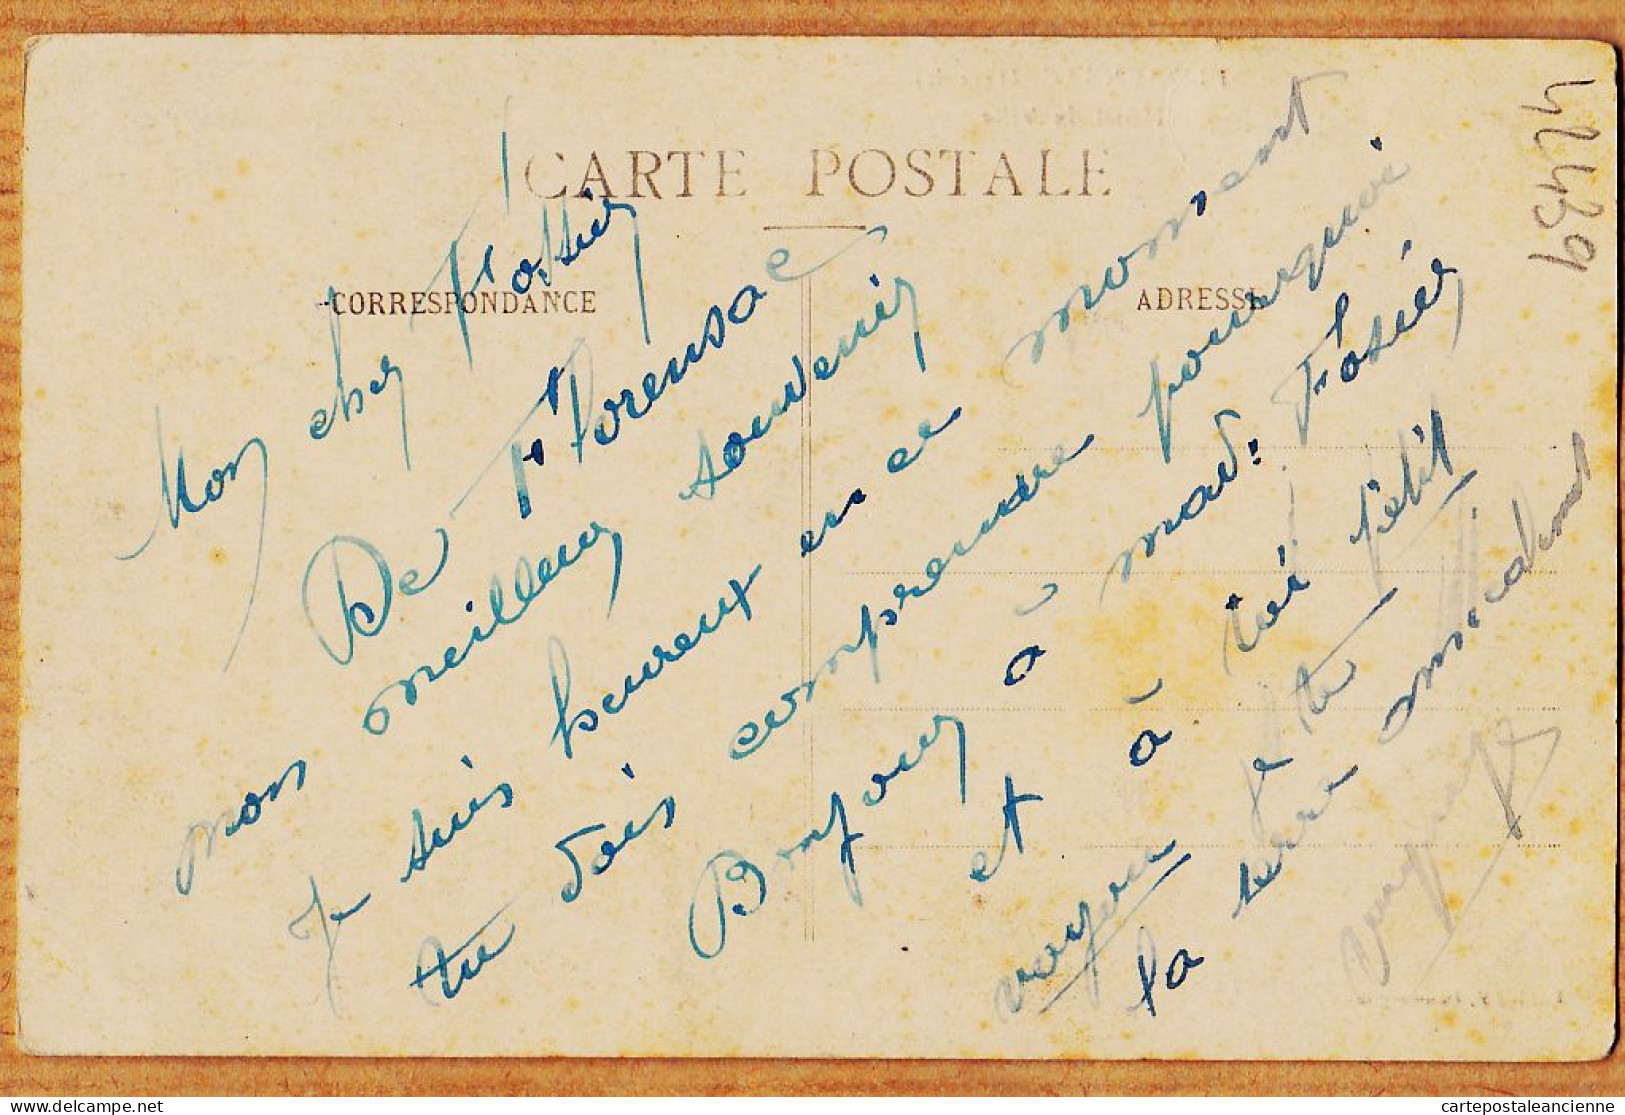 CARTE POSTALE
CORRESPONDANCE
ADRESSE
42439
Mon cher
De Florensac
mon meilleur souvenir
Je suis heureux en ce moment
tu dois comprendre pourquoi
Bonjour à mad:
et à toi petit
voyou je te
la serre amicalement
cartepostaleancienne